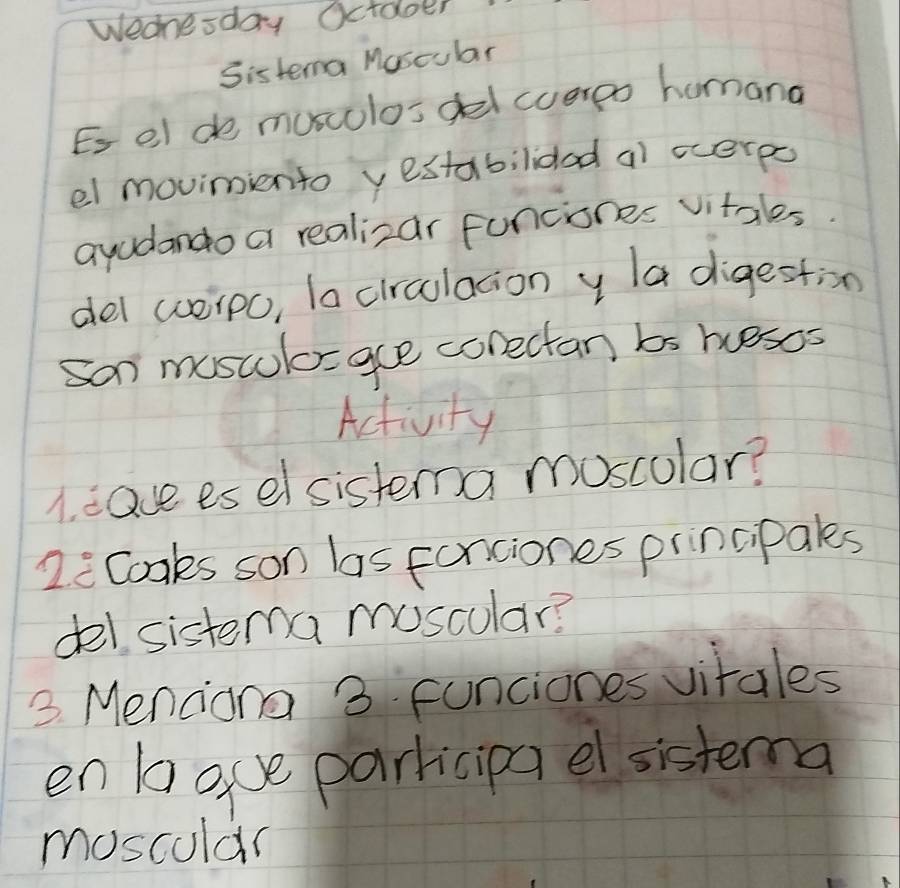 Wednesday October
Sistema Muscular
Es el de musculos del cuerpo humano
el movimiento y estabilidad al cuerpo
ayudando a realizar funciones vitales.
del cuerpo, la circulacion y la digestion
son musculos que conectan los huesos
Activity
1. ¿Que es el sistema muscular?
2. ¿Cuales son las funciones principales
del sistema muscular?
3. Menciona 3 funciones vitales
en la que participa el sistema
muscular